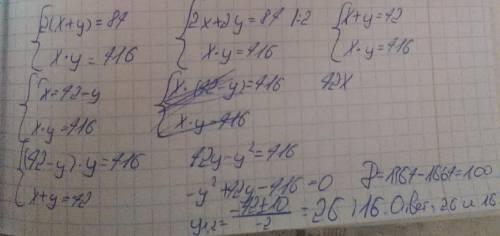 2(x+y)=84
x·y=416
2x+2y=84 |:2
x·y=416
x+y=42
x·y=416
x=42-y
x·y=416
x·(42-y)=416
x·y=416
42x
(42-y)·y=416
x+y=42
42y-y²=416
-y²+42y-416=0
D=1764-1664=100
y₁,₂=(-42±10)/-2=26;16. Ответ: 26 и 16